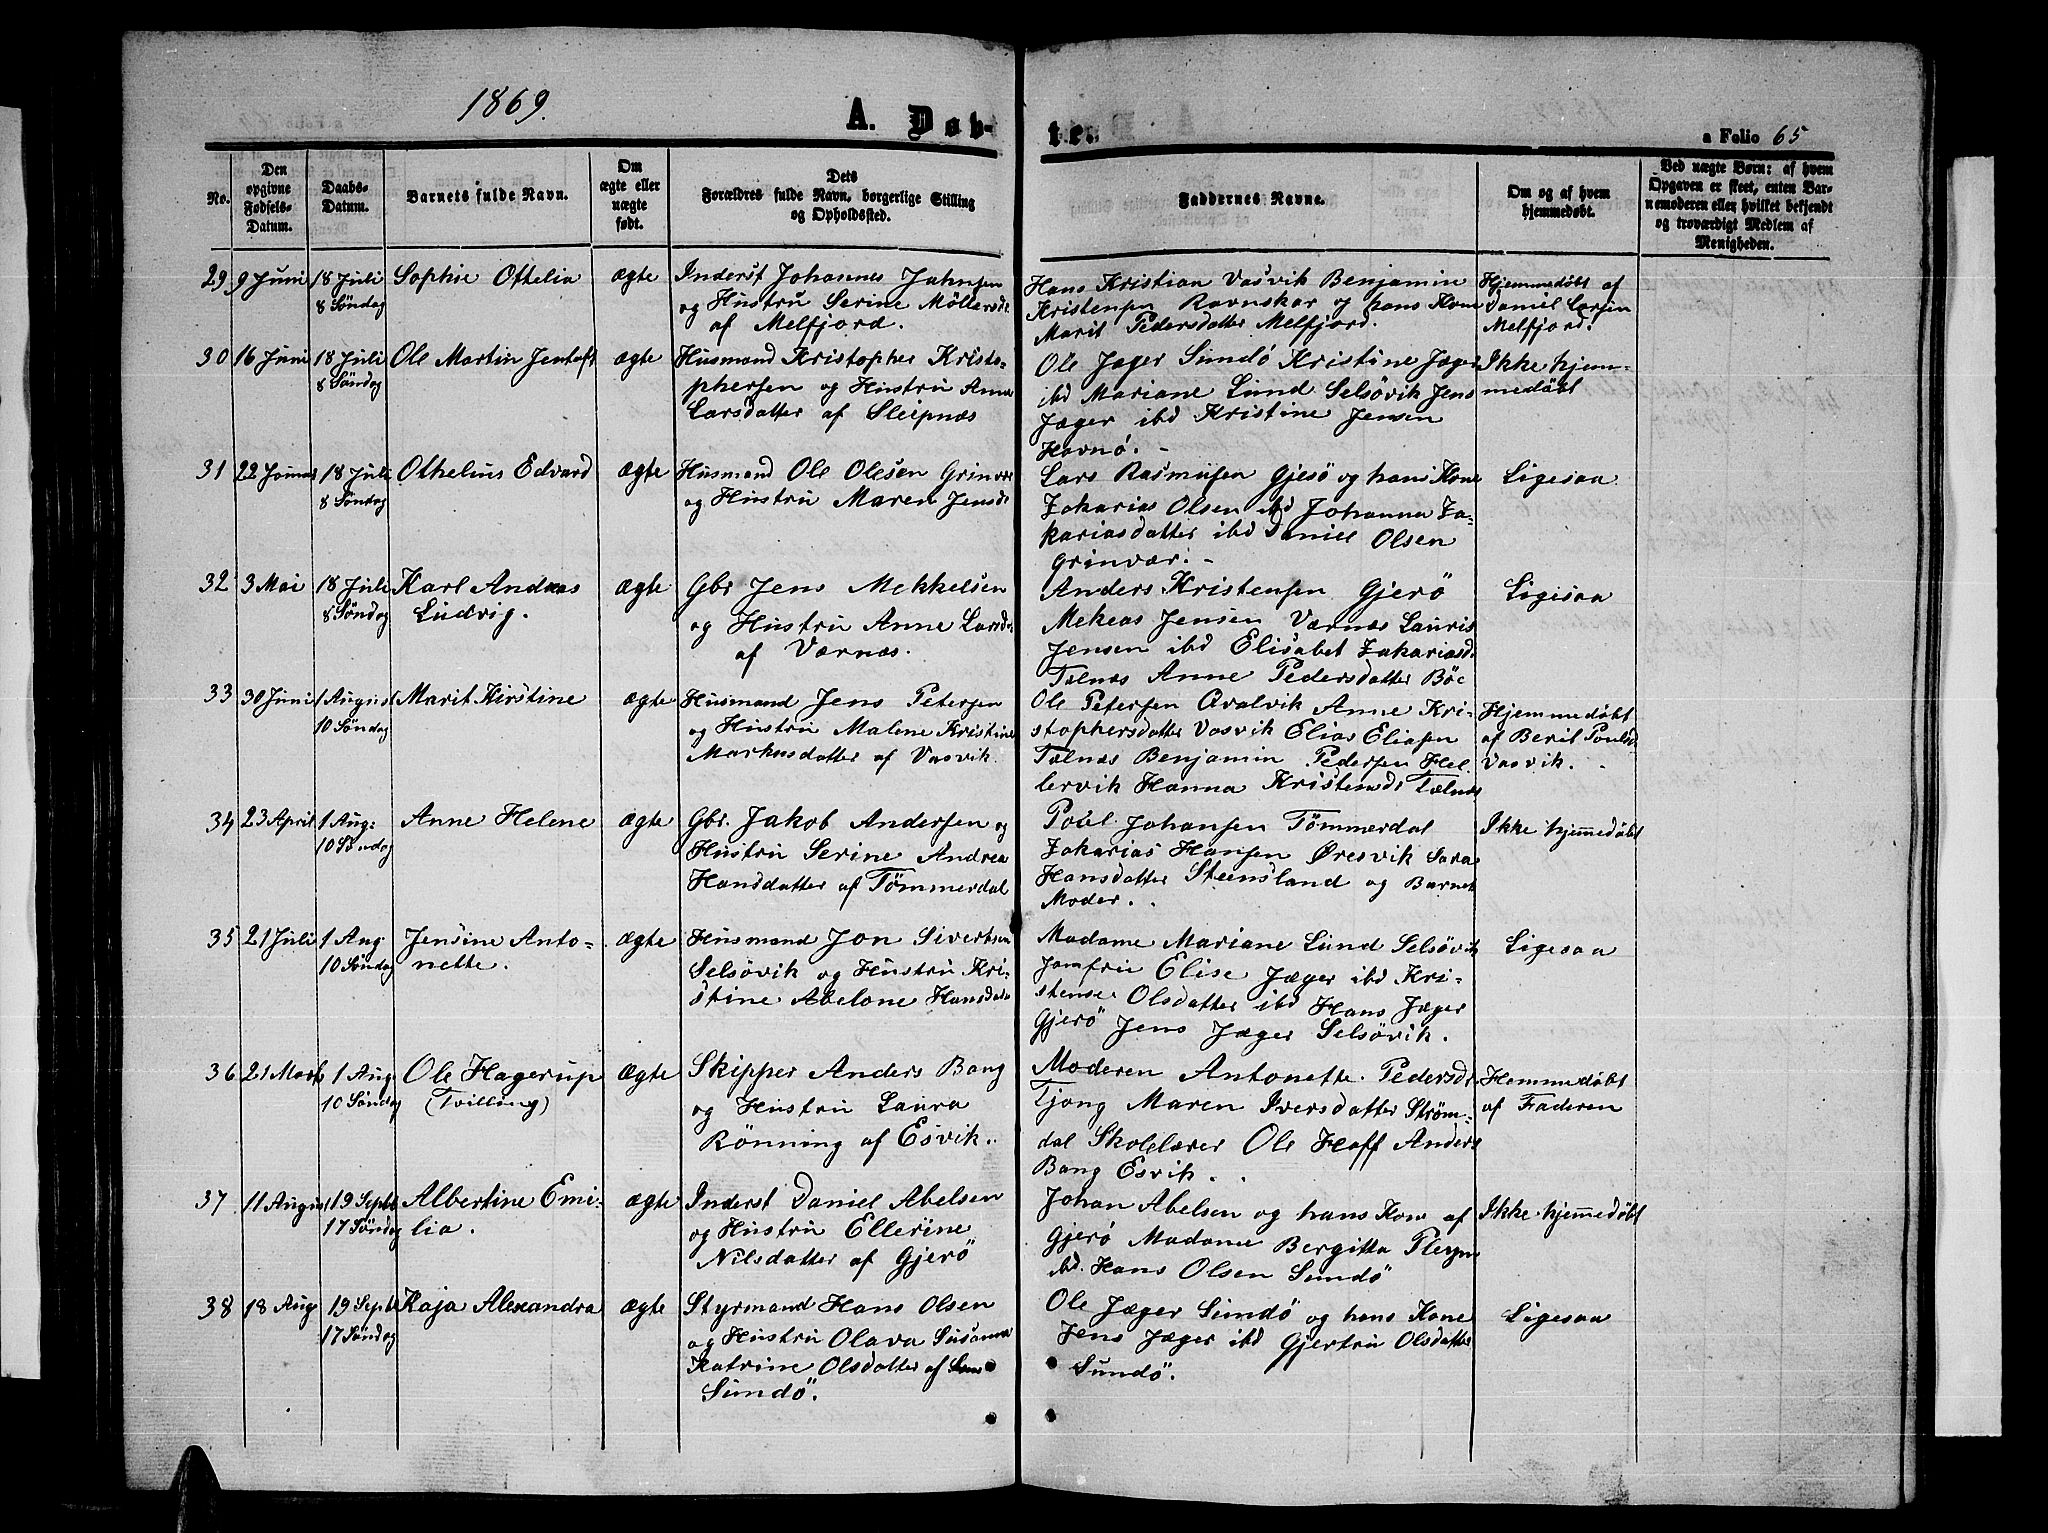 1869.
A. Døb-
te.
a Folio 65
No.
Den
opgivne
Fødsels-
Datum.
Daabs-
Datum.
Barnets fulde Navn.
Om
ægte eller
uægte
født.
Dets
Forældres fulde Navn, borgerlige Stilling
og Opholdssted.
Faddernes Navne.
Om og af hvem
hjemmedøbt.
Ved uægte Børn: af hvem
Opgaven er skeet, enten Bar-
nemoderen eller hvilket bekjendt
og troværdigt Medlem af
Menigheden.
29 9 Juni
18 Juli
8 Søndag
Sophie Othelia
ægte
Inderst Johannes Jahnsen
og Hustru Serine Möllersdr
af Melfjord.
Hans Kristian Vasvik Benjamin
Kristensen Ravnskar og hans Kone
Marit Pedersdatter Melfjord.
Hjemmedøbt af
Daniel Larsen
Melfjord.
30 16 Juni
18 Juli
8 Søndag
Ole Martin Jentoft
ægte
Husmand Kristopher Kristo-
phersen og Hustru Anne
Larsdatter af Sleipnæs
Ole Jæger Sundö Kristine Jæger
ibd Mariane Lund Selsövik Jens
Jæger ibd Kristine Jensen
Havnö.
Ikke hjem-
medøbt
31 22 Januar
18 Juli
8 Søndag
Othelius Edvard
ægte
Husmand Ole Olesen Grinvær
og Hustru Maren Jensdr
Lars Rasmusen Gjesö og hans Kone
Zakarias Olsen ibd Johanna Za-
kariasdatter ibd Daniel Olsen
Grinvær.
Ligesaa
32 3 Mai
18 Juli
8 Søndag
Karl Andreas
Ludvig.
ægte
Gbr Jens Mekkelsen
og Hustru Anne Larsdr
af Værnæs.
Anders Kristensen Gjerö
Mekeas Jensen Værnæs Lauris
Jensen ibd Elisabet Zakariasdr
Telnæs Anne Pedersdatter Böe
Ligesaa
33 30 Juni
1 August
10 Søndag
Marit Kirstine
ægte
Husmand Jens Petersen
og Hustru Malene Kristine
Markusdatter af Vasvik
Ole Petersen Qvalvik Anne Kri-
stophersdatter Vasvik Elias Eliasen
Telnæs Benjamin Pedersen Hel-
lervik Hanna Kristensdr Telnæs
Hjemmedøbt
af Berit Poulsdr
Vasvik.
34 23 April
1 Aug:
10 Søndag
Anne Helene
ægte
Gbr. Jakob Andersen og
Hustru Serine Andrea
Hansdatter af Tömmerdal
Poul Johansen Tömmerdal
Zakarias Hansen Øresvik Sara
Hansdatter Steensland og Barnets
Moder.
Ikke hjemedøbt
35 21 Juli
1 Aug
10 Søndag
Jensine Anto-
nette.
ægte
Husmand Jon Sivertsen
Selsövik og Hustru Kri-
stine Abelone Hansdatr
Madame Mariane Lund Selsövik
Jomfru Elise Jæger ibd Kri-
stense Olsdatter ibd Hans Jæger
Gjerö Jens Jæger Selsövik.
Ligesaa
36 21 Marts
1 Aug
10 Søndag
Ole Hagerup
(Tvilling)
ægte
Skipper Anders Bang
og Hustru Laura
Rönning af Esvik.
Moderen Antonette Pedersdr
Tjong Maren Iversdatter Ström-
dal Skolelærer Ole Hoff Anders
Bang Esvik.
Hemmedøbt
af Faderen
37 11 August
19 Septb
17 Søndag
Albertine Emi-
lia.
ægte
Inderst Daniel Abelsen
og Hustru Ellerine
Nilsdatter af Gjerö
Johan Abelsen og hans Kone af
Gjerö Madame Bergitta
ibd. Hans Olsen Sundö
Ikke hjemedøbt
38 18 Aug
19 Septb
17 Søndag
Kaja Alexandra
ægte
Styrmand Hans Olsen
og Hustru Olava Susanna
Katrine Olsdatter af
Sundö.
Ole Jæger Sundö og hans Kone
Jens Jæger ibd Gjertru Olsdatter
Sundö.
Ligesaa